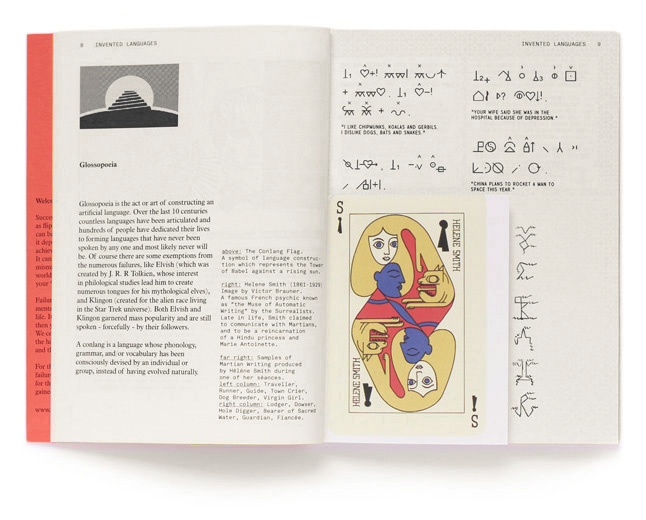 8 INVENTED LANGUAGES
Glossopoeia
Glossopoeia is the act or art of constructing an
artificial language. Over the last 10 centuries
countless languages have been articulated and
hundreds of people have dedicated their lives
to forming languages that have never been
spoken by any one and most likely never will
be. Of course there are some exemptions from
the numerous failures, like Elvish (which was
created by J. R. R Tolkien, whose interest
in philological studies lead him to create
numerous tongues for his mythological elves),
and Klingon (created for the alien race living
in the Star Trek universe). Both Elvish and
Klingon garnered mass popularity and are still
spoken - forcefully - by their followers.
A conlang is a language whose phonology,
grammar, and/or vocabulary has been
consciously devised by an individual or
group, instead of having evolved naturally.
above: The Conlang Flag.
A symbol of language construc-
tion which represents the Tower
of Babel against a rising sun.
right: Helene Smith (1861-1929)
Image by Victor Brauner.
A famous French psychic known
as "the Muse of Automatic
Writing" by the Surrealists.
Late in life, Smith claimed
to communicate with Martians,
and to be a reincarnation
of a Hindu princess and
Marie Antoinette.
far right: Samples of
Martian Writing produced
by Hélène Smith during
one of her séances.
left column: Traveller,
Runner, Guide, Town Crier,
Dog Breeder, Virgin Girl.
right column: Lodger, Dowser,
Hole Digger, Bearer of Sacred
Water, Guardian, Fiancée.
INVENTED LANGUAGES 9
"I LIKE CHIPMUNKS, KOALAS AND GERBILS.
I DISLIKE DOGS, BATS AND SNAKES."
"YOUR WIFE SAID SHE WAS IN THE
HOSPITAL BECAUSE OF DEPRESSION."
"CHINA PLANS TO ROCKET A MAN TO
SPACE THIS YEAR."
S
HELENE SMITH
HELENE SMITH
S